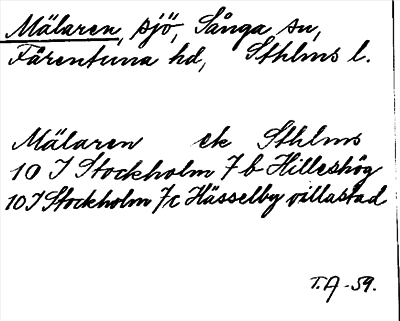 Mälaren, sjö, Sånga sn,
Färentuna hd, Sthlms l.
Mälaren ek Sthlms
10 I Stockholm 7b Hilleshög
10 I Stockholm 7c Hässelby villastad
T.A -59.